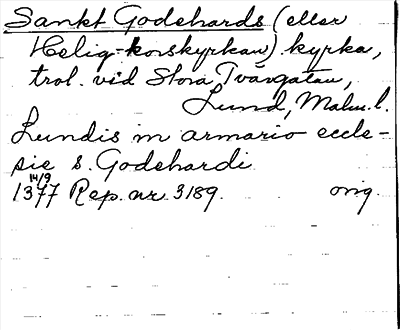 Sankt Godehards (eller
Helig-korskyrkan) kyrka,
trol. vid Stora Tvärgatan,
Lund, Malm. l.
Lundis in armario eccle-
sie s. Godehardi
14/9
1377 Rep. nr 3189. orig.